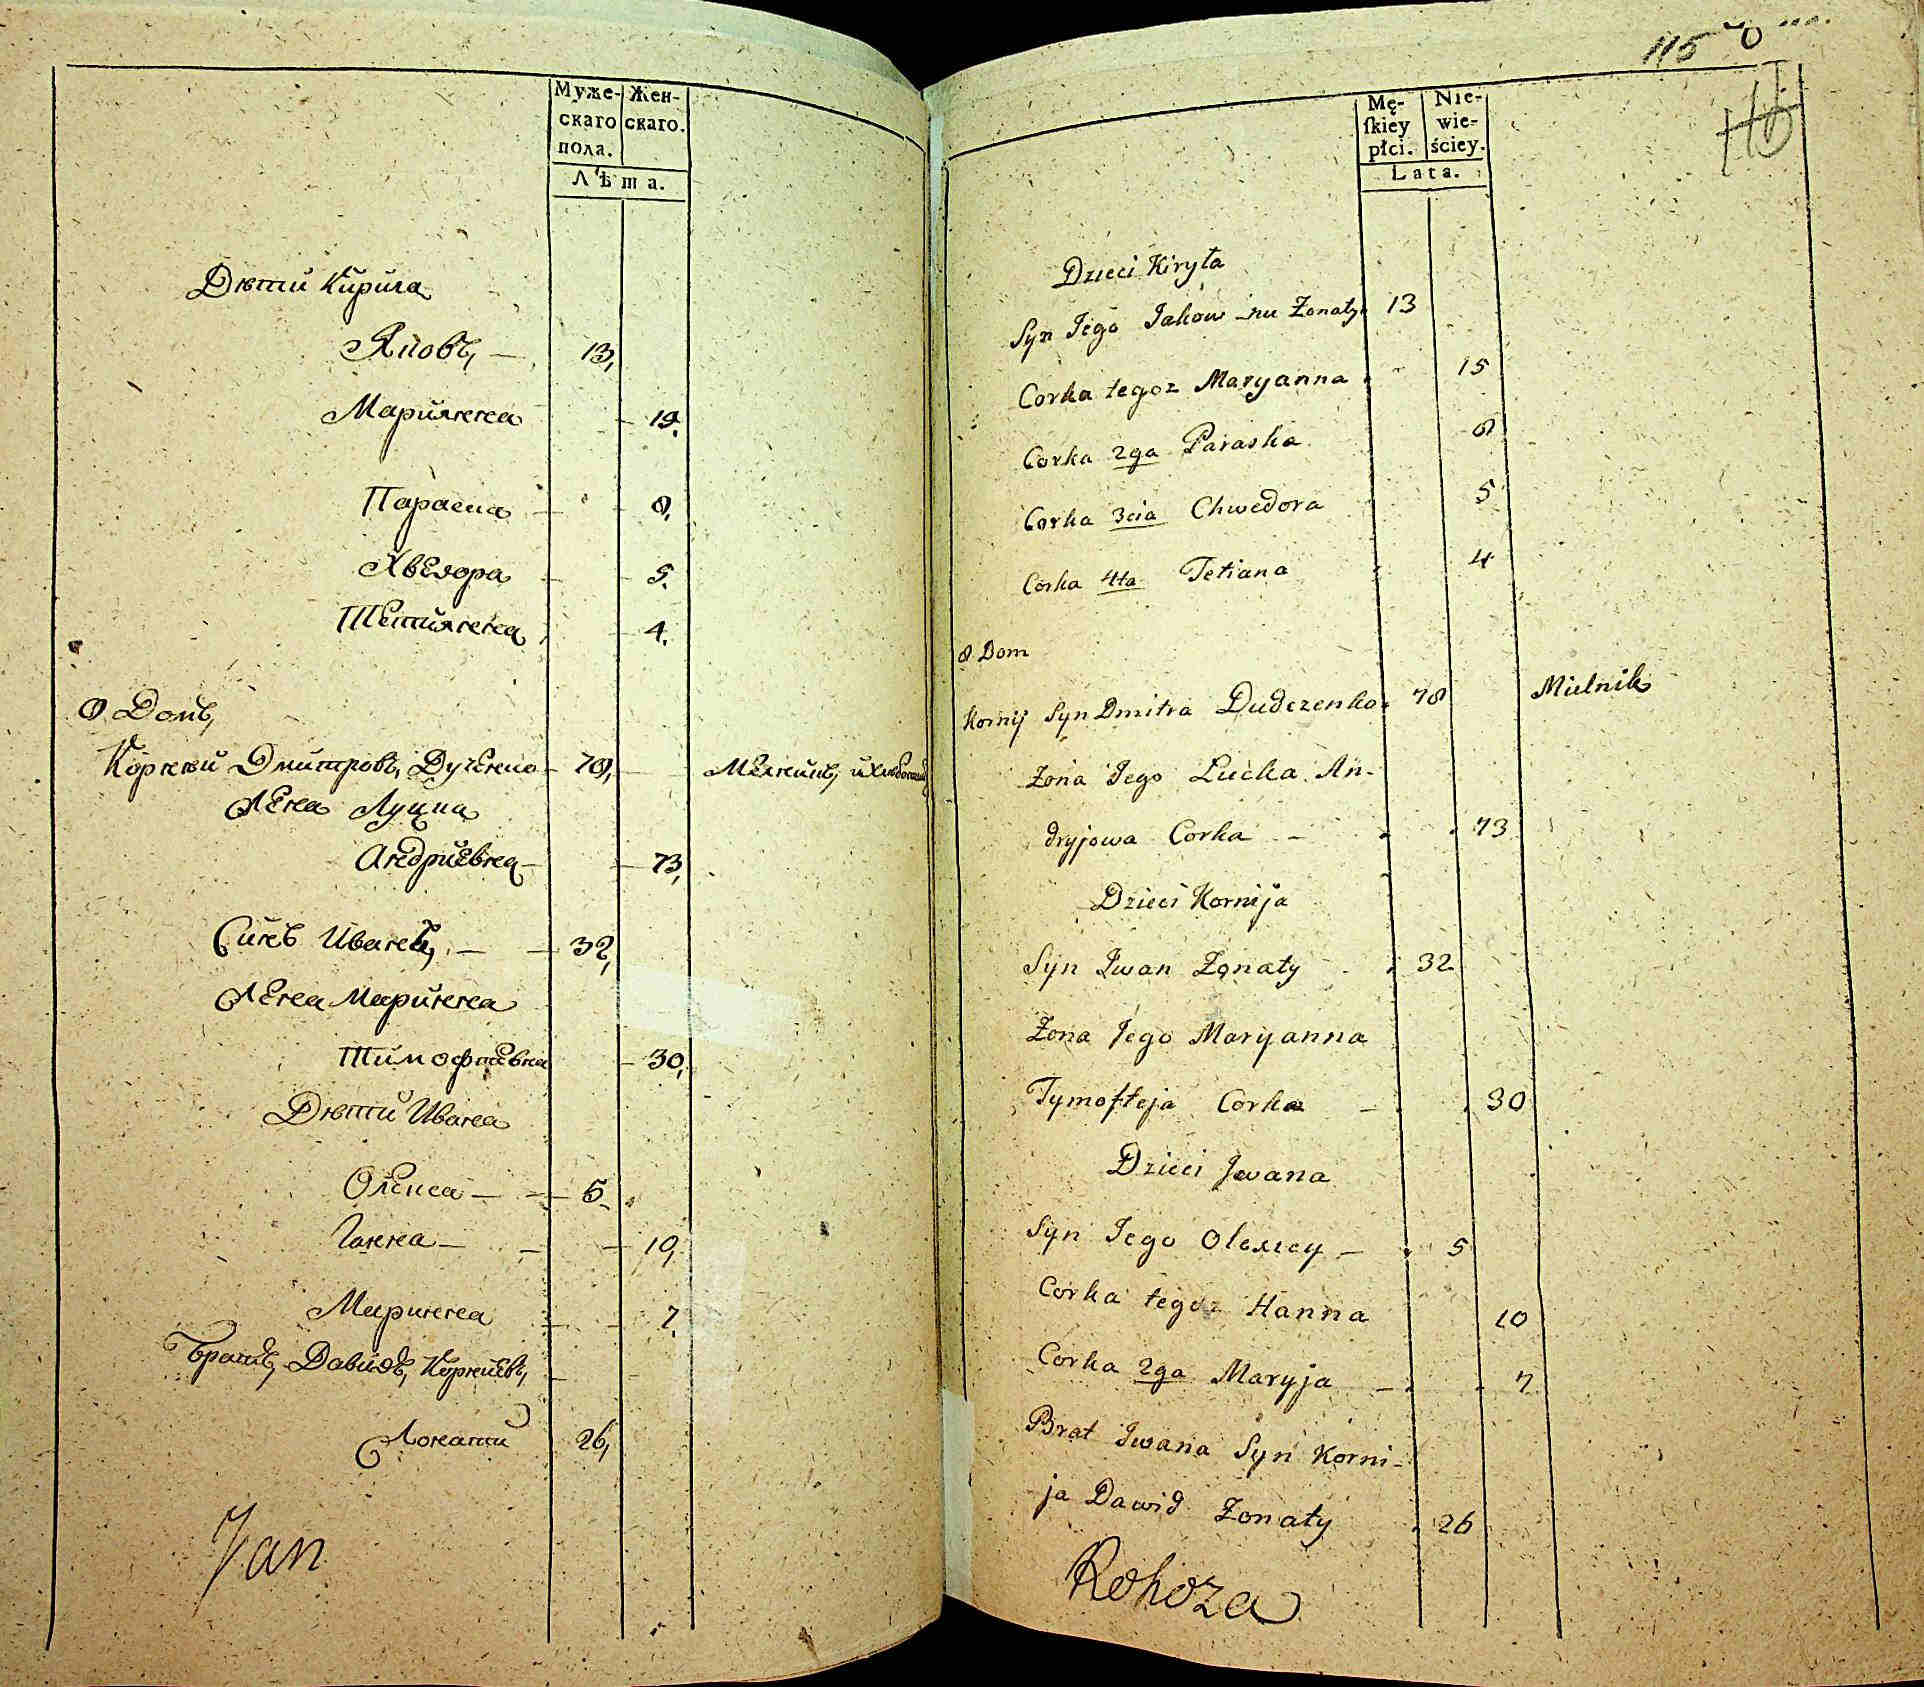 Муже- Жен-
скаго скаго.
пола.
Лѣта.
Дѣти Кирила
Яковъ, — 13,
Марияна — 19.
Параска — 8,
Хведора — 5.
Тетияна, — 4.
8 Домъ,
Корней Дмитровъ, Дученко — 78, — Мелникъ,
Жена Луцка
Андриевна — 73,
Синъ Иванъ, — 32,
Жена Маринна
Тимофѣевна — 30,
Дѣти Ивана
Олекса — 5.
Ганна — 10,
Маринна — 7.
Братъ, Давидъ, Корниевъ,
Жонати 26,
Jan
115
Mę- Nie-
skiey wie-
płci. ściey.
Lata.
Dzieci Kiryła
Syn Jego Jakow nie Żonaty 13
Corka tegoz Maryanna 15
Corka 2ga Paraska 8
Corka 3cia Chwedora 5
Corka 4ta Tetiana 4
8 Dom
Kornij Syn Dmitra Dudczenko 78 Mielnik
Żona Jego Lucka An-
dryjowa Corka — 73
Dzieci Kornija
Syn Iwan Żonaty 32
Żona Jego Maryanna
Tymofteja Corka — 30
Dzieci Jwana
Syn Jego Olexiey — 5
Corka tegoz Hanna 10
Corka 2ga Maryja — 7
Brat Iwana Syn Korni-
ja Dawid Żonaty 26
Rohoza